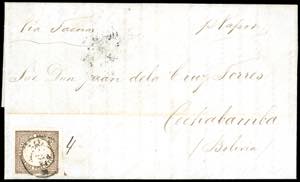 Via Tacna
p. Vapor
Sor Don Juan de la Cruz Torres
Cochabamba
Bolivia
4